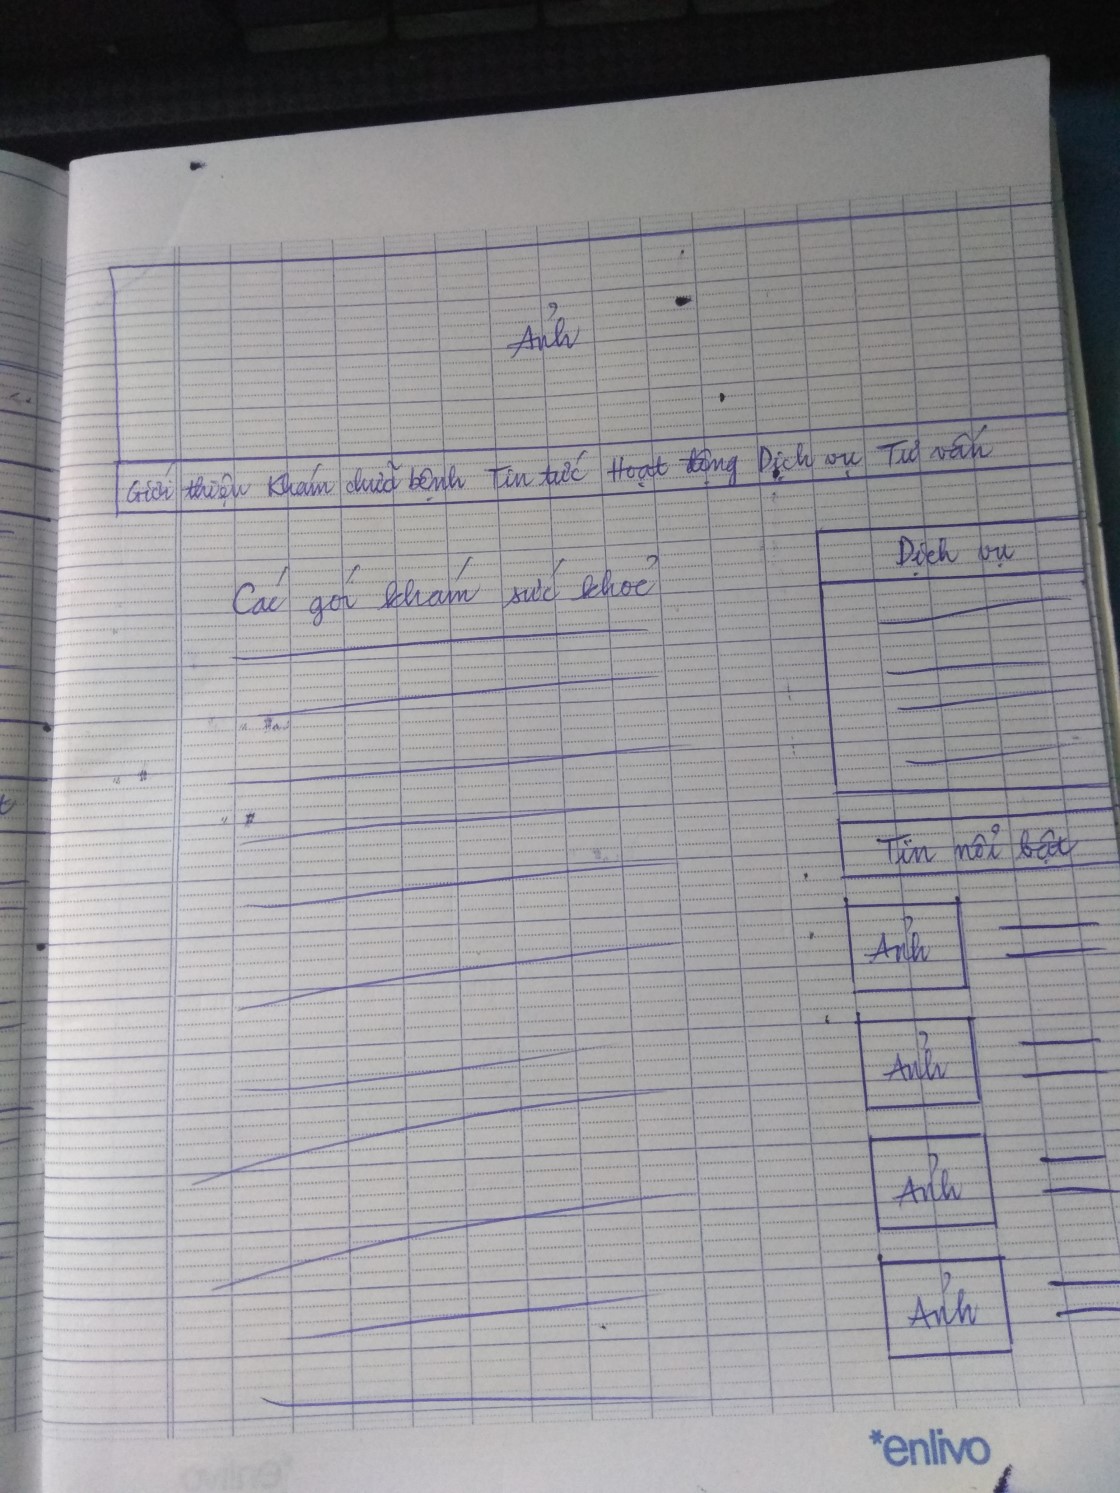 Ảnh
Giới thiệu Khám chữa bệnh Tin tức Hoạt động Dịch vụ Tư vấn
Các gói khám sức khoẻ
Dịch vụ
Tin nổi bật
Ảnh
Ảnh
Ảnh
Ảnh
*enlivo